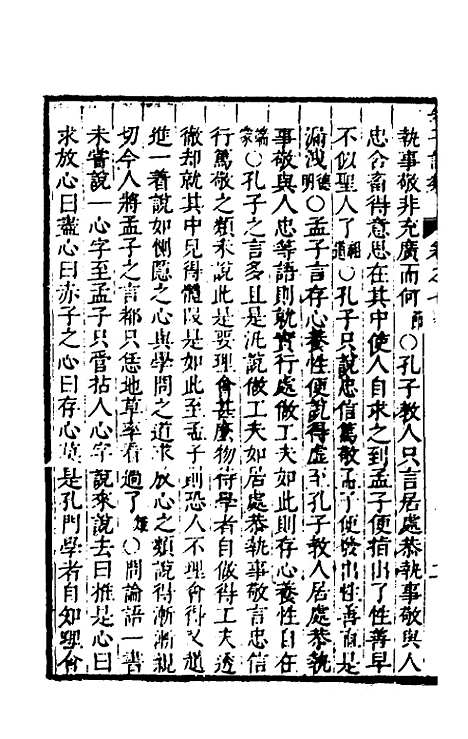 執事敬非充廣而何節○孔子教人只言居處恭執事敬與人
忠含畜得意思在其中使人自求之到孟子便指出了性善早
不似聖人了祖道○孔子只說忠信篤敬孟子便發出性善直是
漏洩德明○孟子言存心養性便說得虛至孔子教人居處恭執
事敬與人忠等語則就實行處做工夫如此則存心養性自在
端蒙○孔子之言多且是汎說做工夫如居處恭執事敬言忠信
行篤敬之類未說此是要理會甚麼物待學者自做得工夫透
徹却就其中見得體段是如此至孟子則恐人不理會得又趲
進一着說如惻隱之心與學問之道求放心之類說得漸漸親
切今人將孟子之言都只恁地草率看過了
○問論語一書
未嘗說一心字至孟子只管拈人心字說來說去曰推是心曰
求放心曰盡心曰赤子之心曰存心莫是孔門學者自知理會